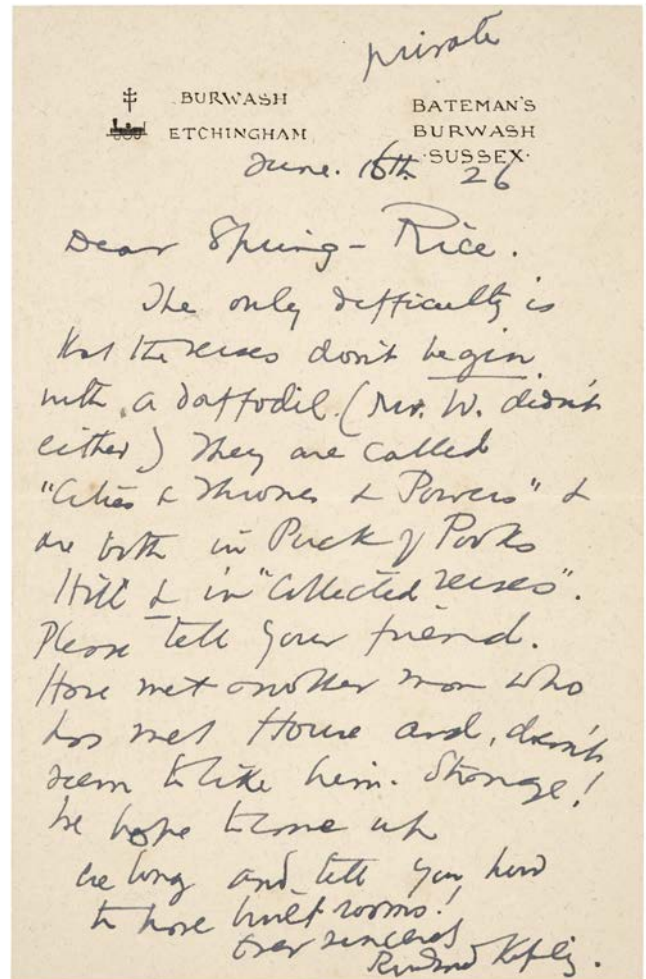 private
BURWASH
ETCHINGHAM
BATEMAN'S
BURWASH
·SUSSEX·
June. 16th 26
Dear Spring-Rice.
The only difficulty is
that the verses don't begin
with a daffodil. (Mr. W. didn't
either) They are called
"Cities & Thrones & Powers" &
are both in Puck of Pooks
Hill & in "Collected verses".
Please tell your friend.
Have met another man who
has met House and, doesn't
seem to like him. Strange!
We hope to come up
ere long and tell you how
to have built rooms!
Ever sincerely
Rudyard Kipling.